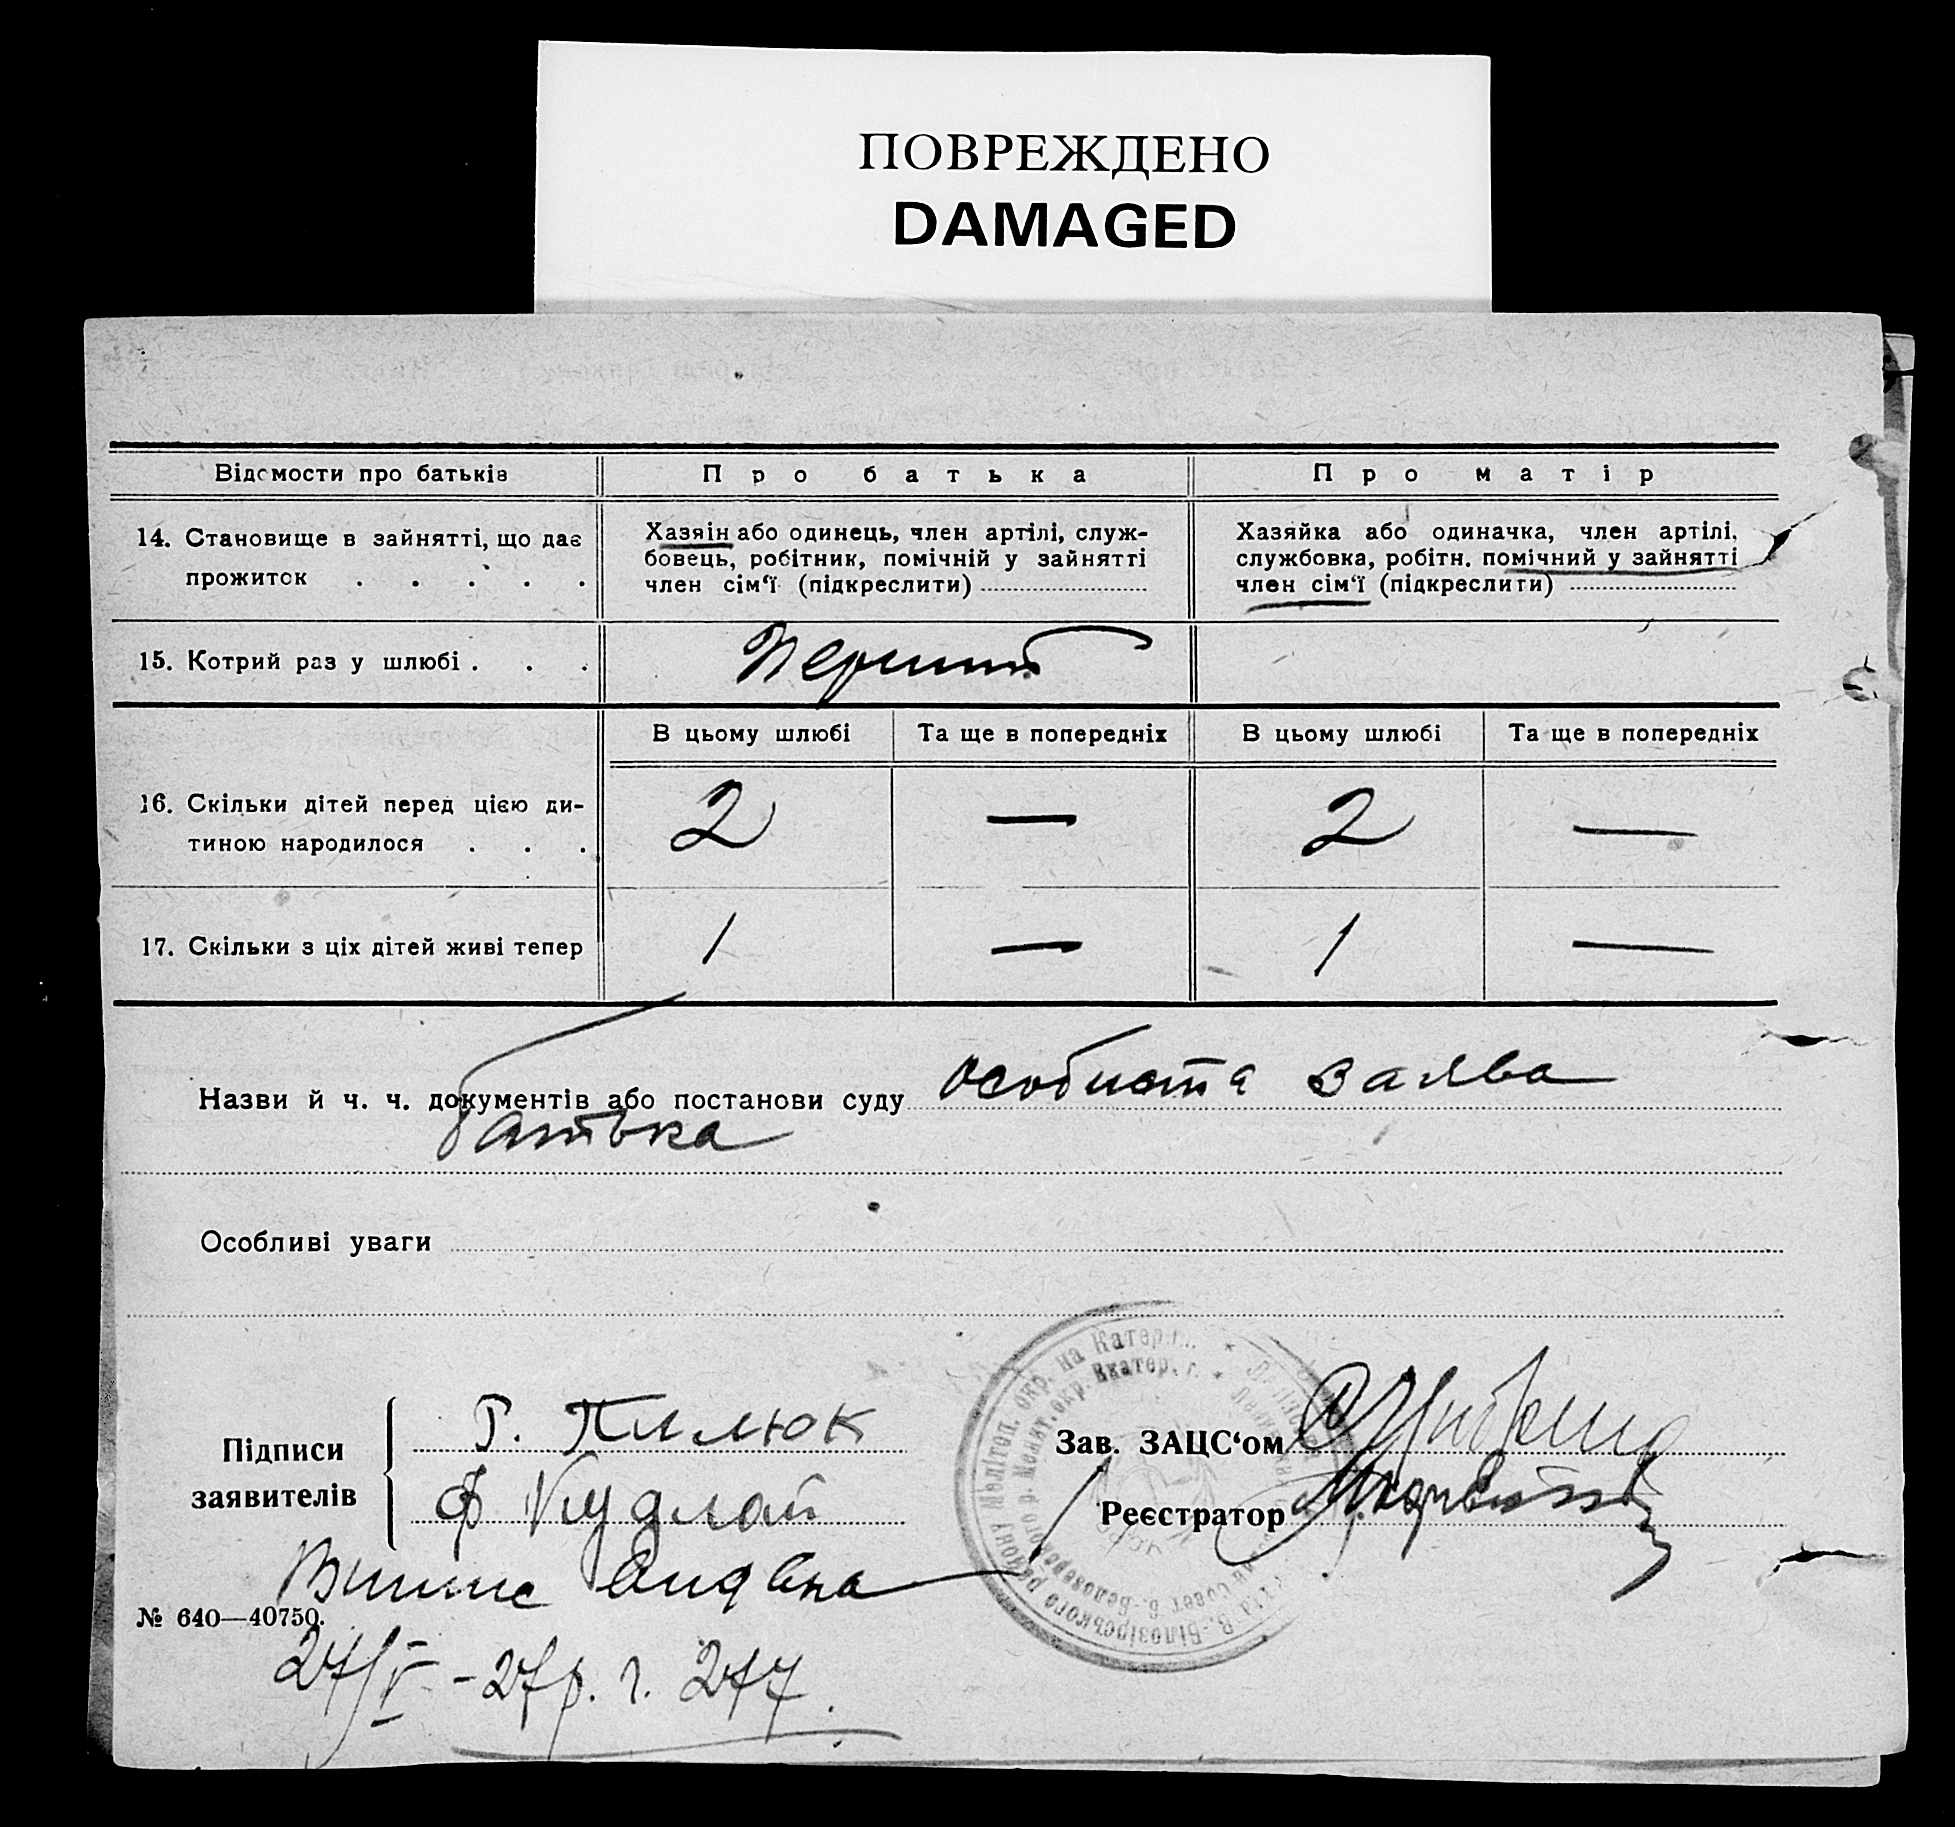 ПОВРЕЖДЕНО
DAMAGED
Відомости про батьків
Про батька
Про матір
14. Становище в зайнятті, що дає
прожиток . . . . .
Хазяін або одинець, член артілі, служ-
бовець, робітник, помічній у зайнятті
член сім‘ї (підкреслити)
Хазяйка або одиначка, член артілі,
службовка, робітн. помічний у зайнятті
член сім‘ї (підкреслити)
15. Котрий раз у шлюбі . . .
Перший
В цьому шлюбі
Та ще в попередніх
В цьому шлюбі
Та ще в попередніх
16. Скільки дітей перед цією ди-
тиною народилося . . .
2 — 2 —
17. Скільки з ціх дітей живі тепер
1 — 1 —
Назви й ч. ч. документів або постанови суду особиста заява
батька
Особливі уваги
Підписи
заявителів
Г. Пилюк
Ф Кудлай
Зав. ЗАЦС‘ом
Реєстратор
Видана
№ 640—40750.
27/V - 27р. г. 277.